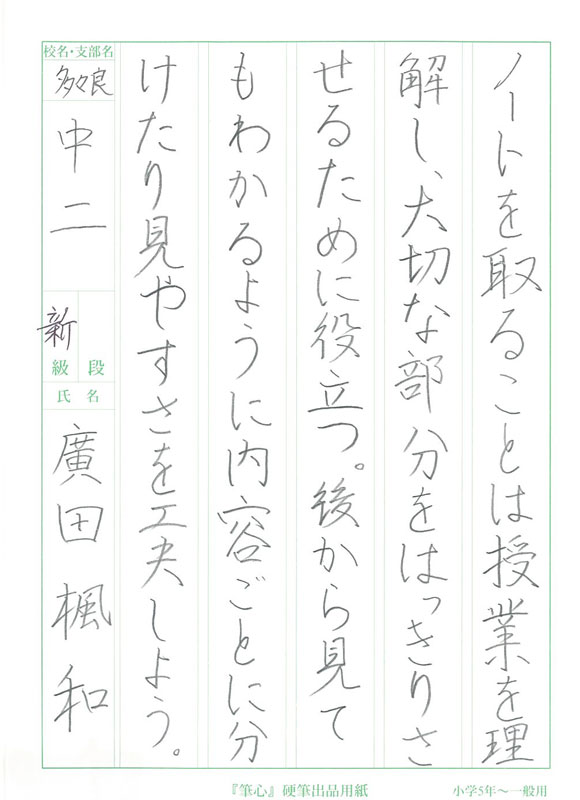 ノートを取ることは授業を理
解し、大切な部分をはっきりさ
せるために役立つ。後から見て
もわかるように内容ごとに分
けたり見やすさを工夫しよう。
校名・支部名
多々良
中二
新
級 段
氏 名
廣田楓和
『筆心』硬筆出品用紙
小学5年〜一般用